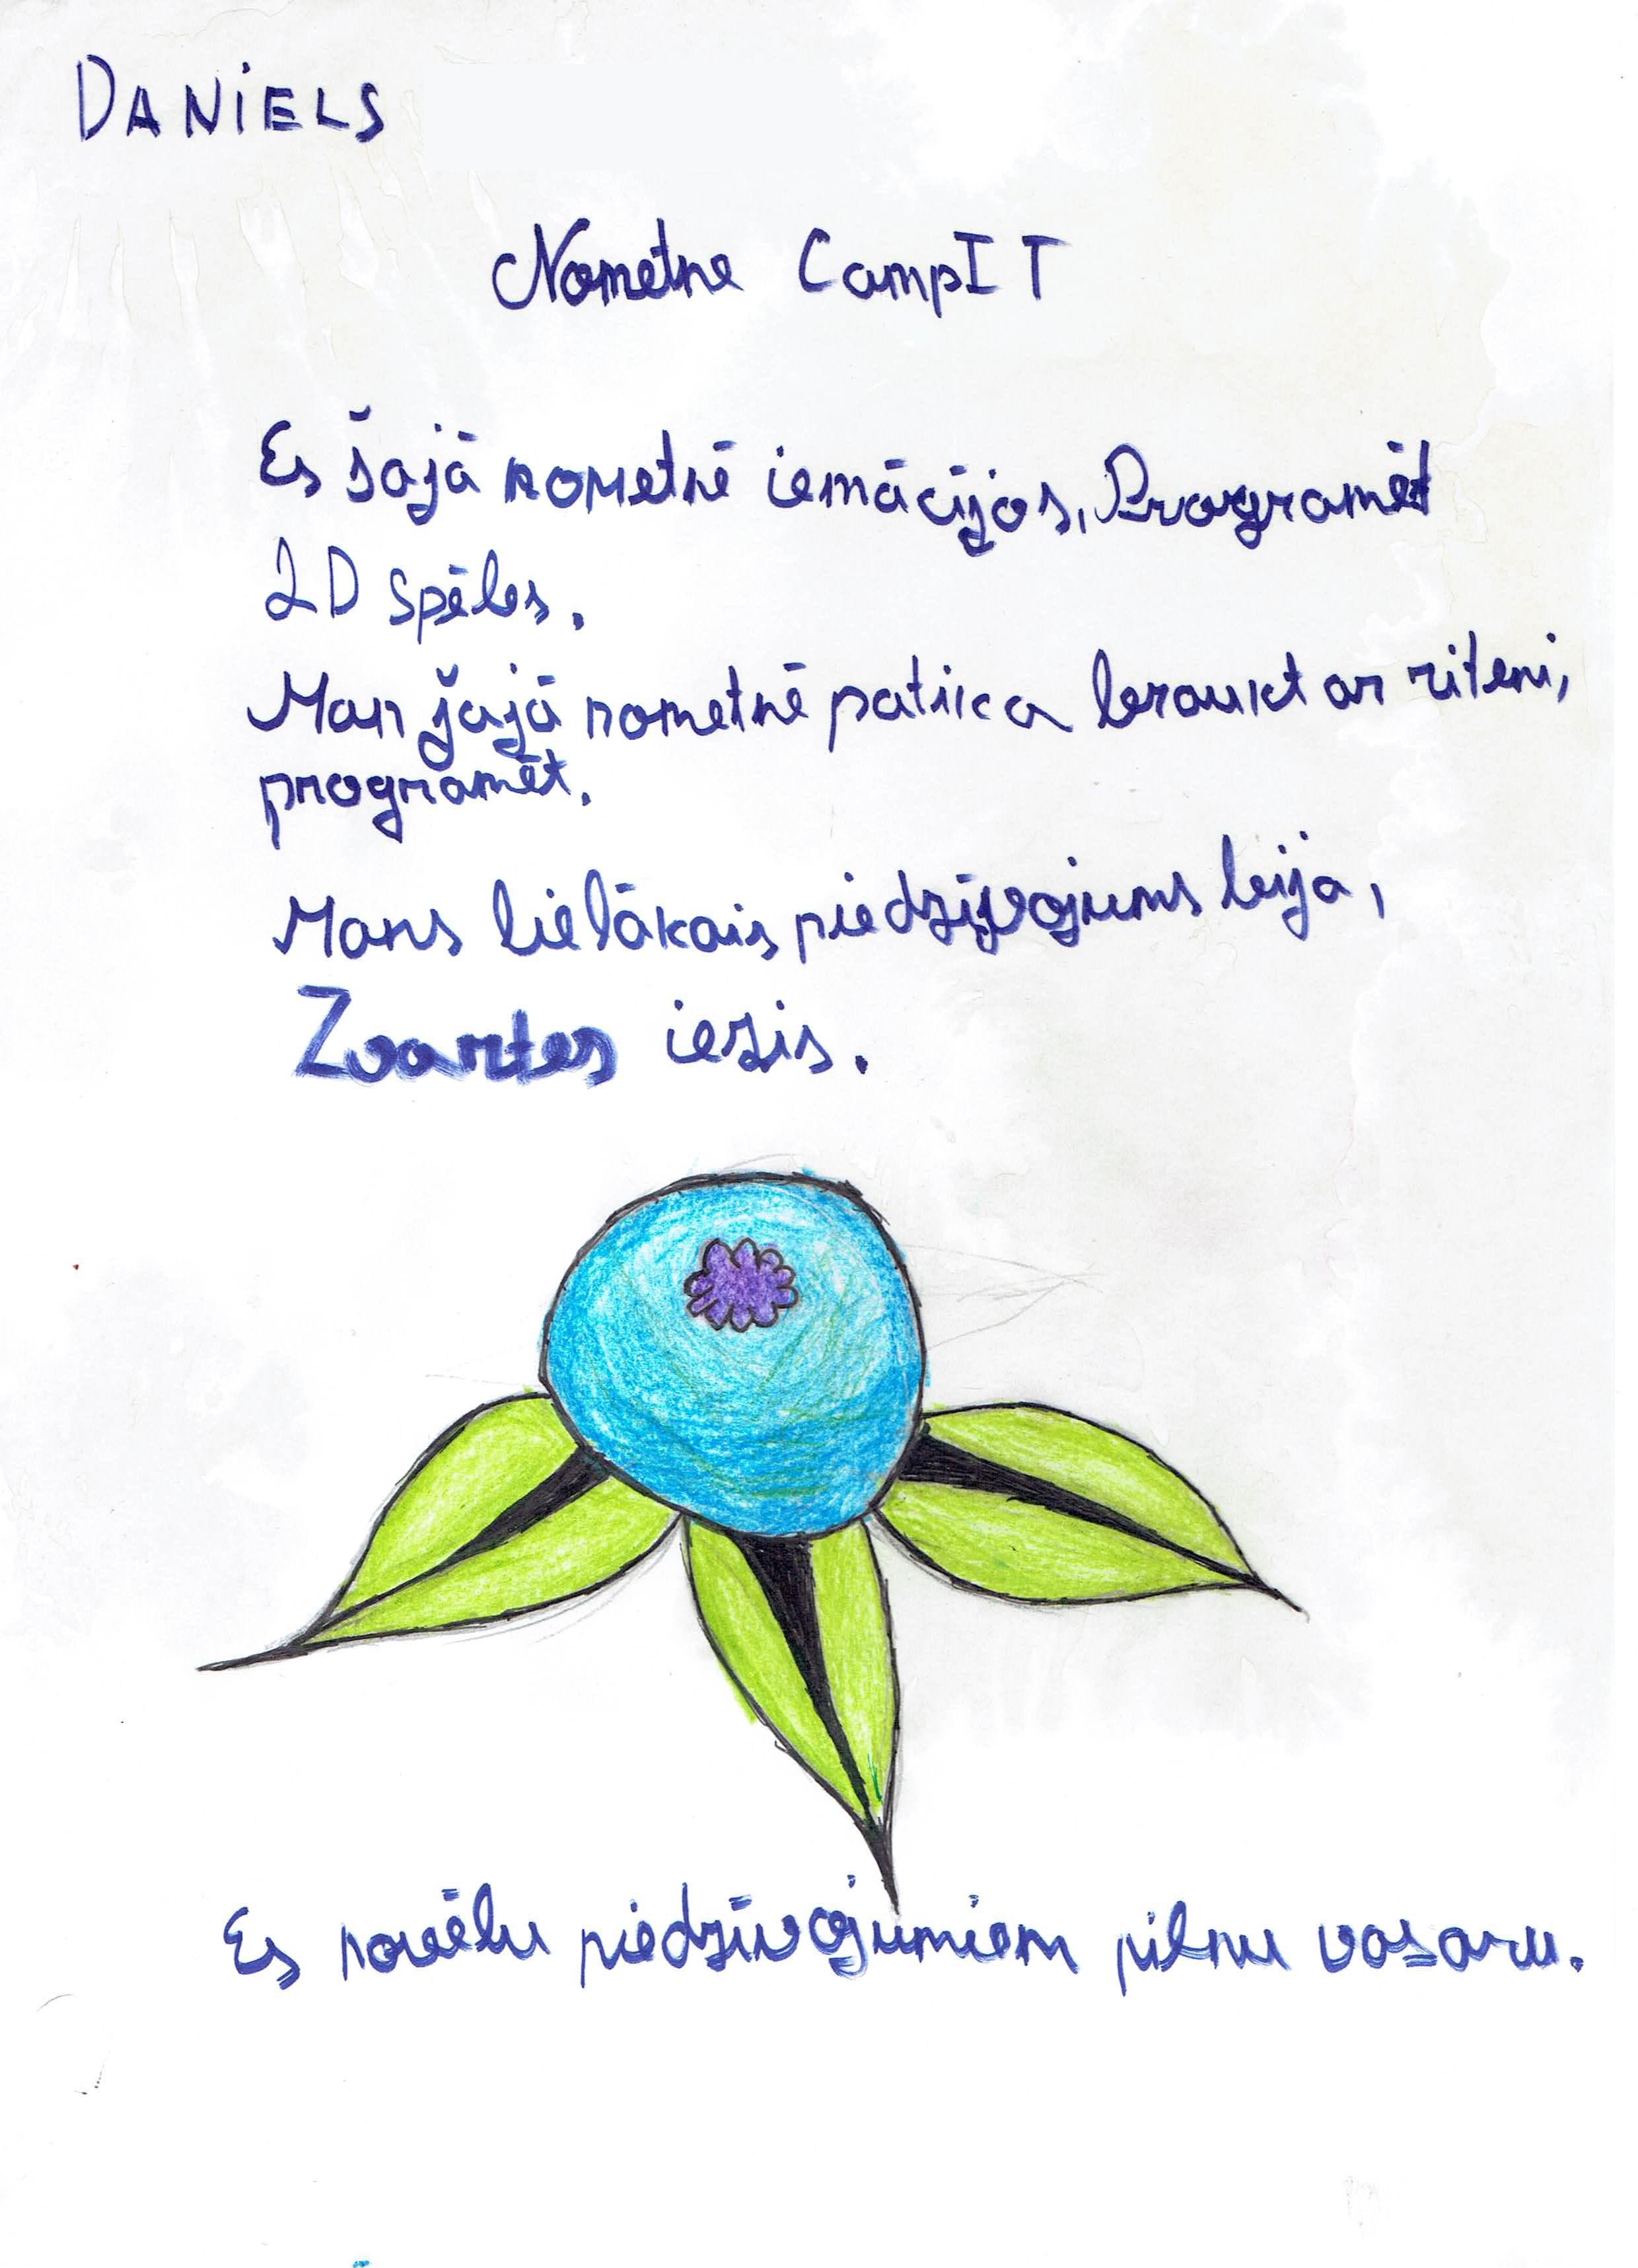 DANIELS
Nometne CampIT
Es šajā nometnē iemācījos, Programēt
2D spēles.
Man šajā nometnē patika braukt ar riteni,
programēt.
Mans lielākais piedzīvojums bija,
Zvartes iezis.
Es novēlu piedzīvojumiem pilnu vasaru.